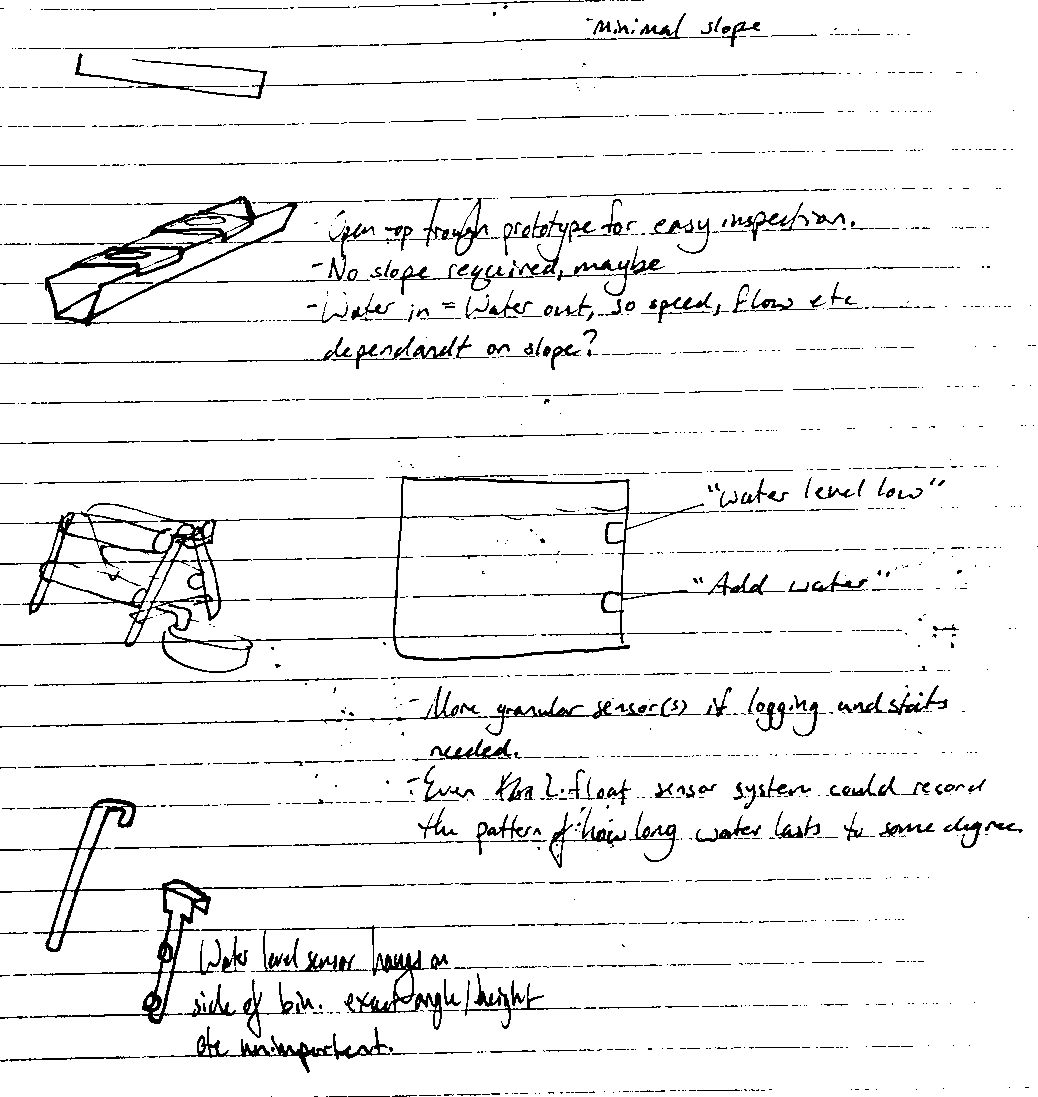 - Minimal slope
- Open top trough prototype for easy inspection.
- No slope required, maybe
- Water in = Water out, so speed, flow etc
dependandt on slope?
"water level low"
"Add water"
- More granular sensor(s) if logging and stats
needed.
- Even 2 float sensor system could record
the pattern of how long water lasts to some degree.
Water level sensor hangs on
side of bin. exact angle/height
etc unimportant.